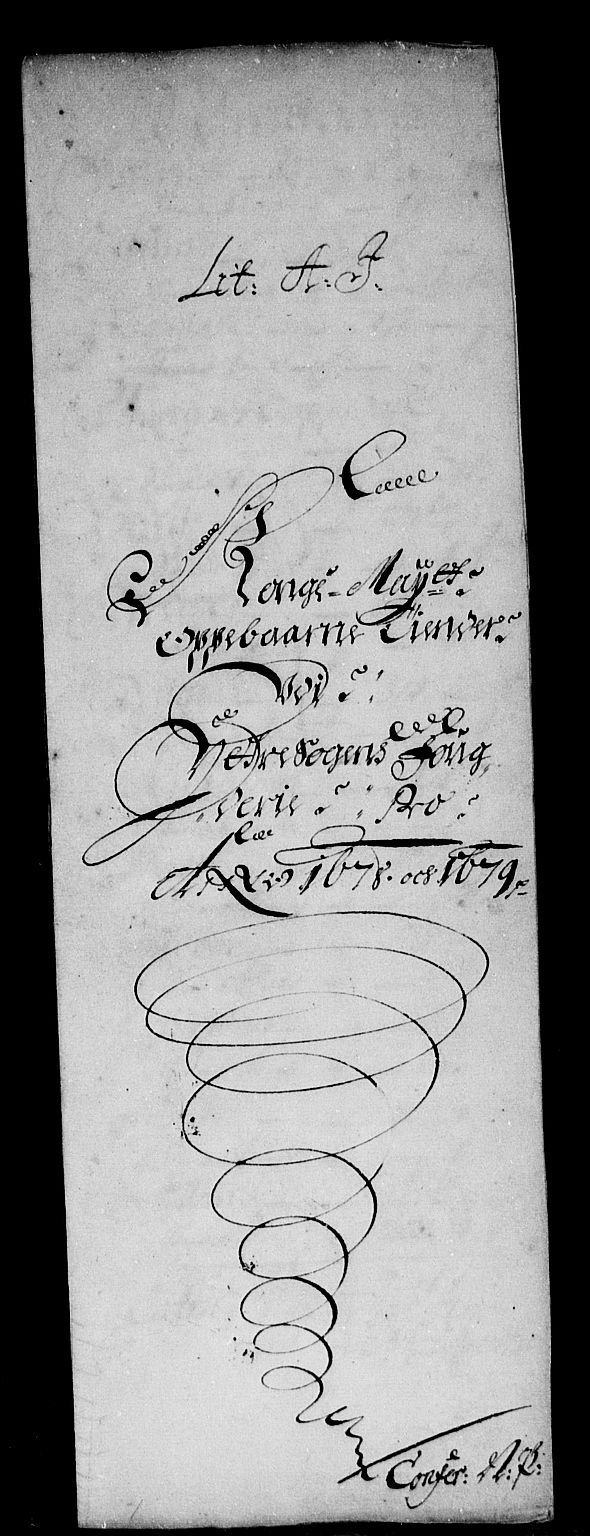 Lit: A: J:
Kongl: Mayttz
Oppebaarne Tiender
Vdj
Nedresogens foug
derie Pro
Anno 1678. och 1679
Confer: N: P: